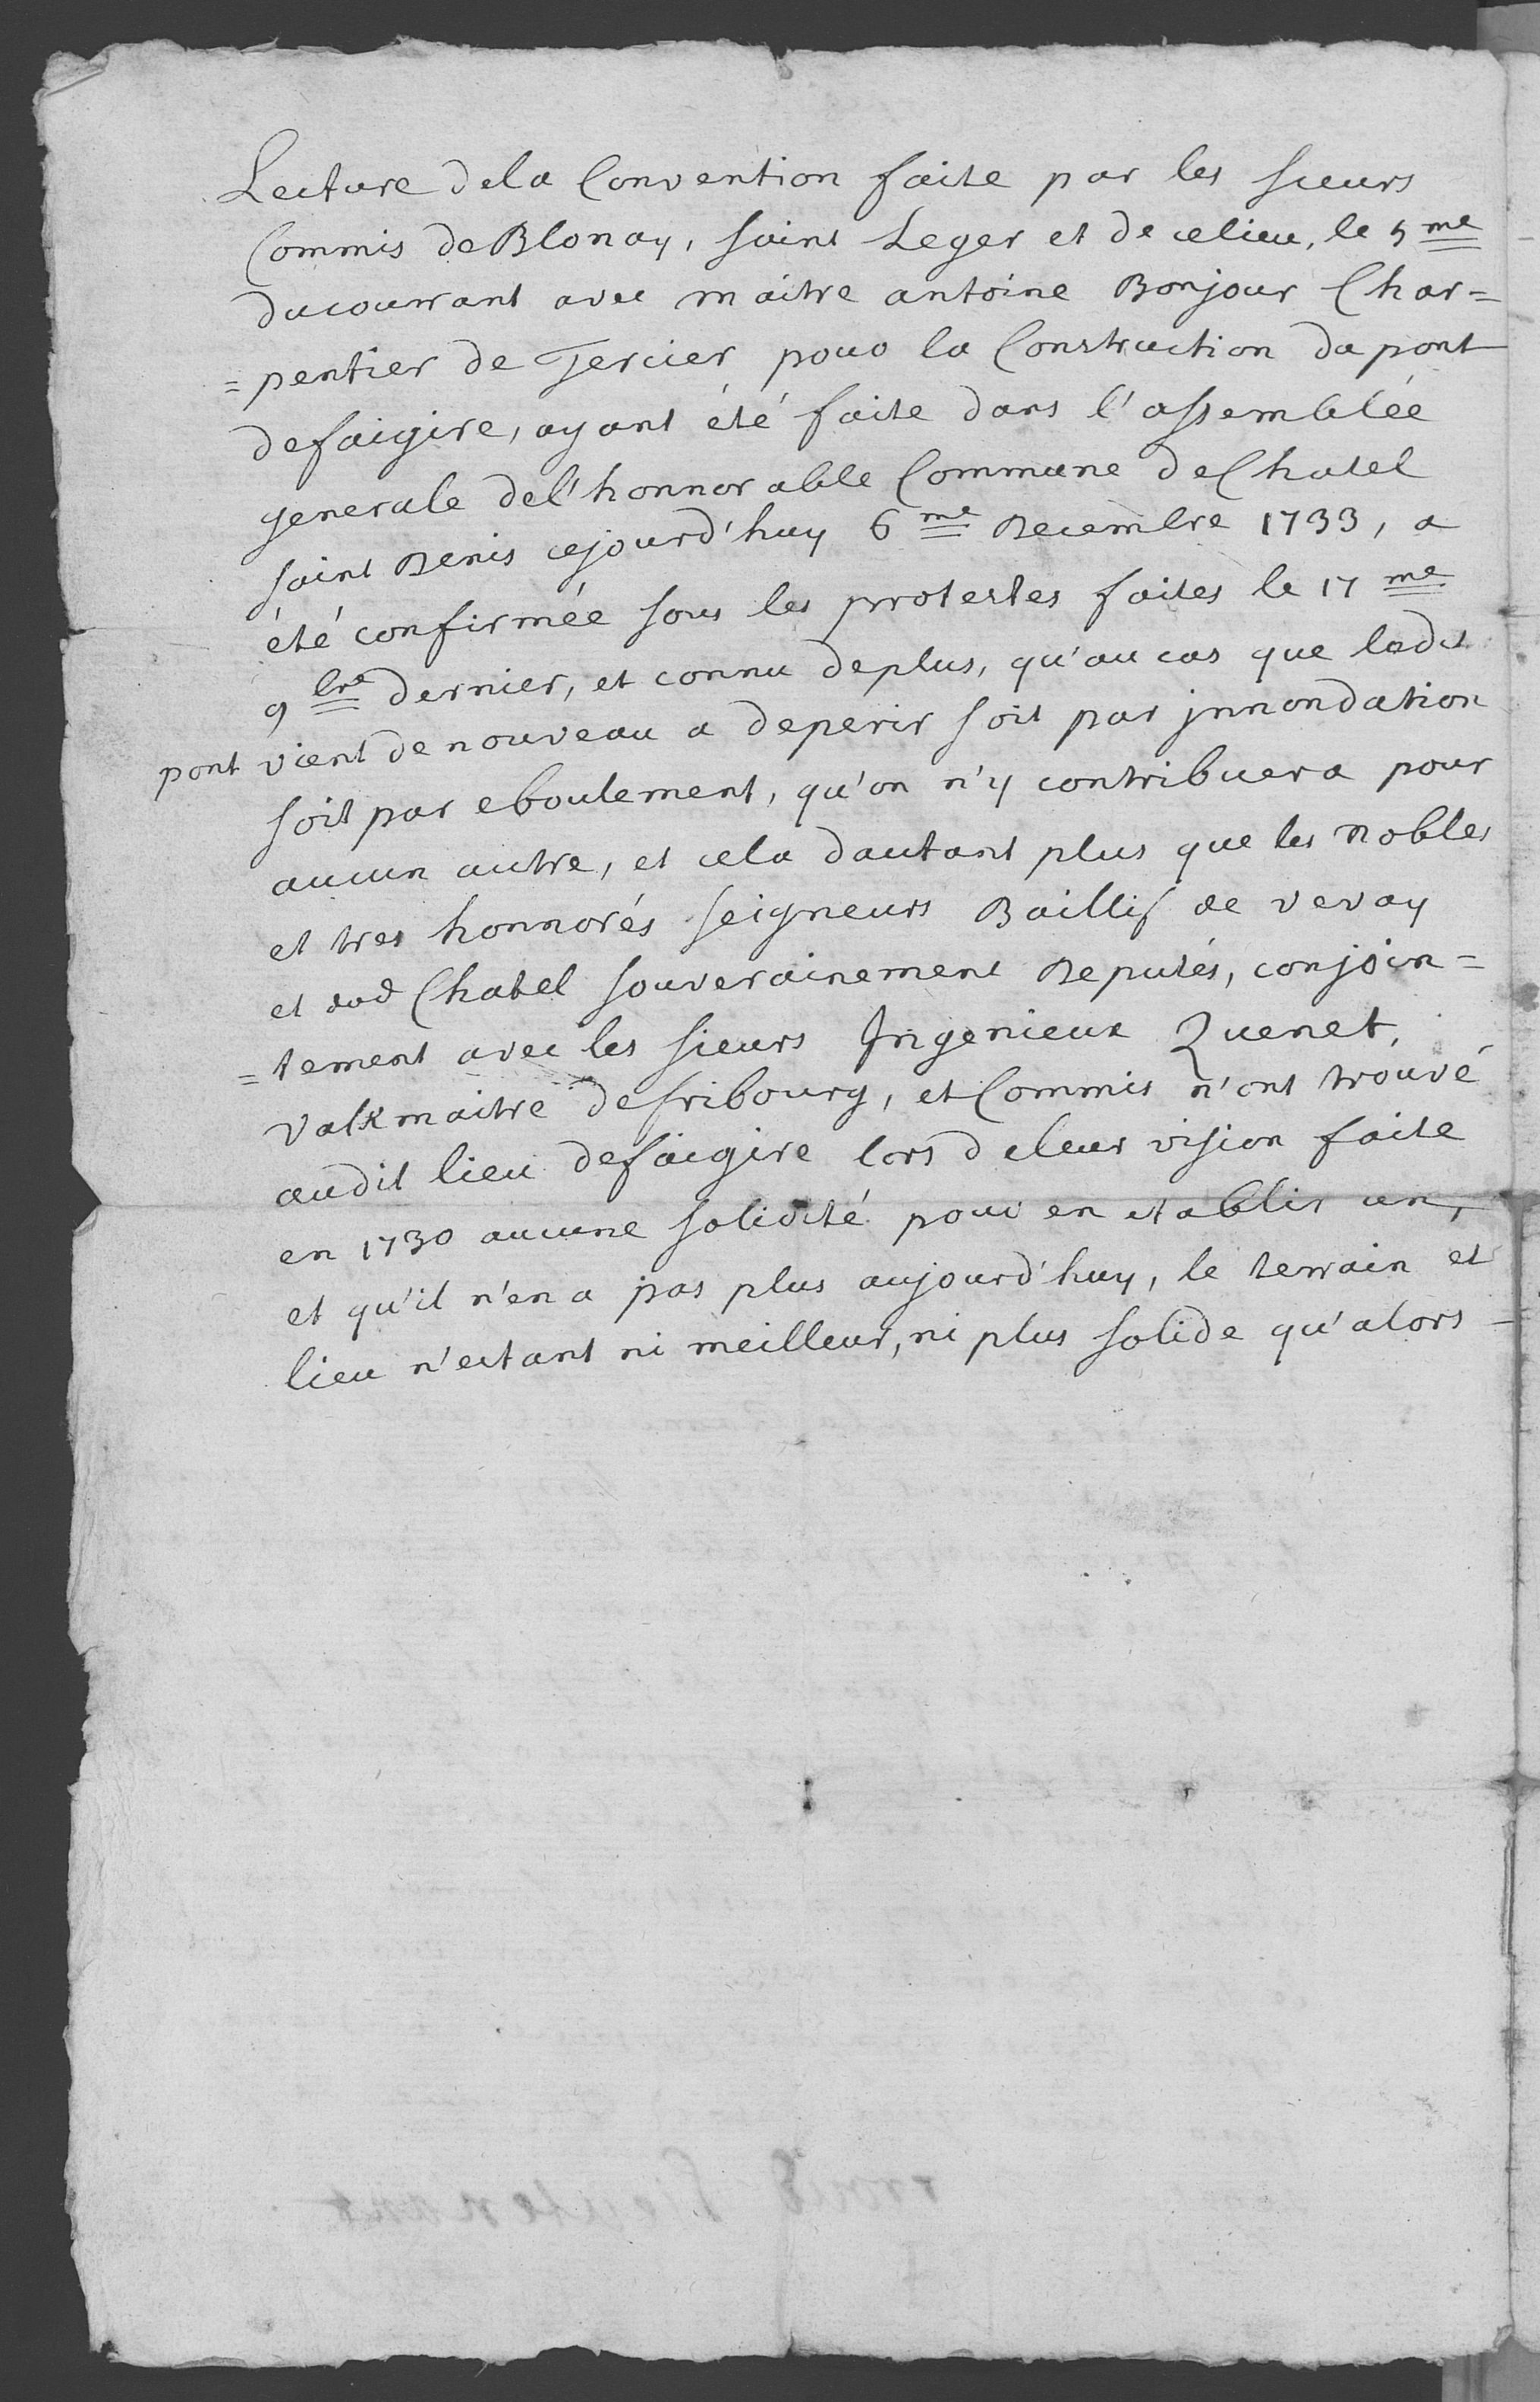 Lecture dela Convention faite par les sieurs
Commis de Blonay, saint Leger et de celieu, le 5me
ducourrant avec maitre antoine Bonjour Char=
=pentier de Tercier pour la Construction du pont
defaigire, ayant été faite dans l'assemblée
generale del'honnorable Commune deChatel
saint Denis cejourd'huy 6me Decembre 1733, a
été confirmée sous les protestes faites le 17me
9bre dernier, et connu deplus, qu'au cas que ledit
pont vient de nouveau a deperir soit par jnnondation
soit par eboulement, qu'on n'y contribuera pour
aucun autre, et cela dautant plus que les Nobles
et tres honnorés seigneurs Baillif de vevay
et dud Chatel souverainement Deputés, conjoin=
=tement avec les sieurs Ingenieur Quenet,
Valkmaitre defribourg, et Commis n'ont trouvé
audit lieu defaigire lors deleur vision faite
en 1730 aucune solidité pour en etablir un,
et qu'il n'en a pas plus aujourd'huy, le terrain et
lieu n'estant ni meilleur, ni plus solide qu'alors